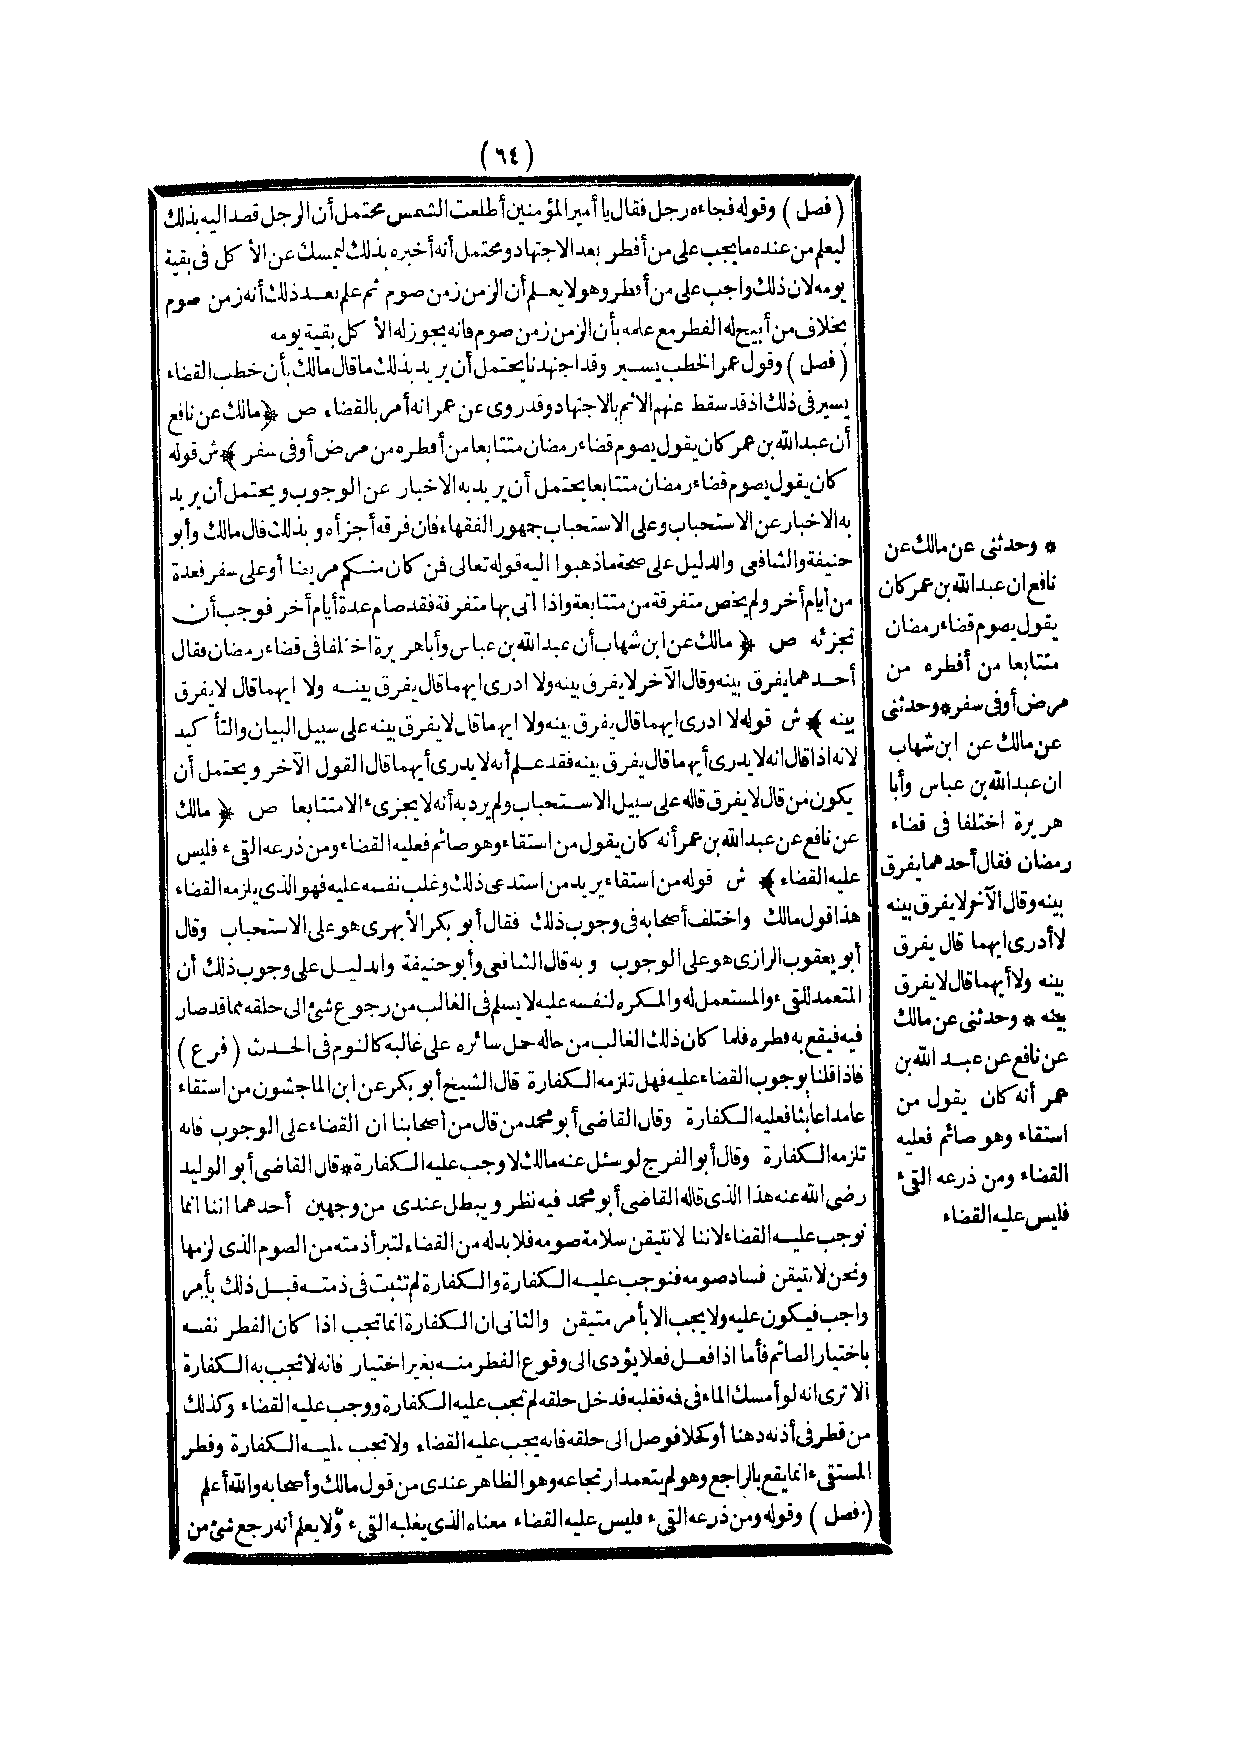 (٦٤)
(فصل) وقوله فجاءه رجل فقال يا أمير المؤمنين أطلعت الشمس يحتمل أن الرجل قصد اليه بذلك
ليعلم من عنده ما يجب على من أفطر بعد الاجتهاد ويحتمل أنه أخبره بذلك ليمسك عن الأكل فى بقية
يومه لان ذلك واجب على من أفطر وهو لا يعلم أن الزمن زمن صوم ثم علم بعد ذلك أنه زمن صوم
بخلاف من أبيح له الفطر مع علمه بأن الزمن زمن صوم فانه يجوز له الأكل بقية يومه
(فصل) وقول عمر الخطب يسير وقد اجتهدنا يحتمل أن يريد بذلك ما قال مالك بأن خطب القضاء
يسير فى ذلك اذ قد سقط عنهم الاثم بالاجتهاد وقد روى عن عمر انه أمر بالقضاء ص ﴿ مالك عن نافع
أن عبد الله بن عمر كان يقول يصوم قضاء رمضان متتابعا من أفطره من مرض أو فى سفر ﴾ ش قوله
كان يقول يصوم قضاء رمضان متتابعا يحتمل أن يريد به الاخبار عن الوجوب ويحتمل أن يريد
به الاخبار عن الاستحباب وعلى الاستحباب جمهور الفقهاء فان فرقه أجزأه وبذلك قال مالك وأبو
حنيفة والشافعى والدليل على صحة ما ذهبوا اليه قوله تعالى فمن كان منكم مريضا أو على سفر فعدة
من أيام أخر ولم يخص متفرقة من متتابعة واذا اتى بها متفرقة فقد صام عدة أيام أخر فوجب أن
تجزئه ص ﴿ مالك عن ابن شهاب أن عبد الله بن عباس وأبا هريرة اختلفا فى قضاء رمضان فقال
أحدهما يفرق بينه وقال الآخر لا يفرق بينه ولا ادرى ايهما قال يفرق بينه ولا ايهما قال لا يفرق
بينه ﴾ ش قوله لا ادرى ايهما قال يفرق بينه ولا ايهما قال لا يفرق بينه على سبيل البيان والتأكيد
لانه اذا قال انه لا يدرى أيهما قال يفرق بينه فقد علم أنه لا يدرى أيهما قال القول الآخر ويحتمل أن
يكون من قال لا يفرق قاله على سبيل الاستحباب ولم يرد به أنه لا يجزىء الا متتابعا ص ﴿ مالك
عن نافع عن عبد الله بن عمر أنه كان يقول من استقاء وهو صائم فعليه القضاء ومن ذرعه القىء فليس
عليه القضاء ﴾ ش قوله من استقاء يريد من استدعى ذلك وغلب نفسه عليه فهو الذى يلزمه القضاء
هذا قول مالك واختلف أصحابه فى وجوب ذلك فقال أبو بكر الأبهرى هو على الاستحباب وقال
أبو يعقوب الرازى هو على الوجوب وبه قال الشافعى وأبو حنيفة والدليل على وجوب ذلك أن
المتعمد للقىء والمستعمل له والمكره لنفسه عليه لا يسلم فى الغالب من رجوع شئ الى حلقه مما قد صار
فيه فيقع به فطره فلما كان ذلك الغالب من حاله حمل سائره على غالبه كالنوم فى الحدث (فرع)
فاذا قلنا بوجوب القضاء عليه فهل تلزمه الكفارة قال الشيخ أبو بكر عن ابن الماجشون من استقاء
عامدا عابثا فعليه الكفارة وقال القاضى أبو محمد من قال من أصحابنا ان القضاء على الوجوب فانه
تلزمه الكفارة وقال أبو الفرج لو سئل عنه مالك لاوجب عليه الكفارة * قال القاضى أبو الوليد
رضى الله عنه هذا الذى قاله القاضى أبو محمد فيه نظر ويبطل عندى من وجهين أحدهما اننا انما
نوجب عليه القضاء لاننا لا نتيقن سلامة صومه فلا بد له من القضاء لتبرأ ذمته من الصوم الذى لزمها
ونحن لا نتيقن فساد صومه فنوجب عليه الكفارة والكفارة لم تثبت فى ذمته قبل ذلك بأمر
واجب فيكون عليه ولا يجب الا بأمر متيقن والثانى ان الكفارة انما تجب اذا كان الفطر نفسه
باختيار الصائم فأما اذا فعل فعلا يؤدى الى وقوع الفطر منه بغير اختيار فانه لا تجب به الكفارة
ألا ترى انه لو أمسك الماء فى فه فغلبه فدخل حلقه لم تجب عليه الكفارة ووجب عليه القضاء وكذلك
من قطر فى أذنه دهنا أو كحلا فوصل الى حلقه فانه يجب عليه القضاء ولا تجب عليه الكفارة وفطر
المستقىء انما يقع بالراجع وهو لم يتعمد ارتجاعه وهو الظاهر عندى من قول مالك وأصحابه والله أعلم
(فصل) وقوله ومن ذرعه القىء فليس عليه القضاء معناه الذى يغلبه القىء ولا يعلم أنه رجع شئ من
* وحدثنى عن مالك عن
نافع ان عبد الله بن عمر كان
يقول يصوم قضاء رمضان
متتابعا من أفطره من
مرض أو فى سفر * وحدثنى
عن مالك عن ابن شهاب
ان عبد الله بن عباس وأبا
هريرة اختلفا فى قضاء
رمضان فقال أحدهما يفرق
بينه وقال الآخر لا يفرق بينه
لا أدرى ايهما قال يفرق
بينه ولا أيهما قال لا يفرق
بينه * وحدثنى عن مالك
عن نافع عن عبد الله بن
عمر أنه كان يقول من
استقاء وهو صائم فعليه
القضاء ومن ذرعه القىء
فليس عليه القضاء